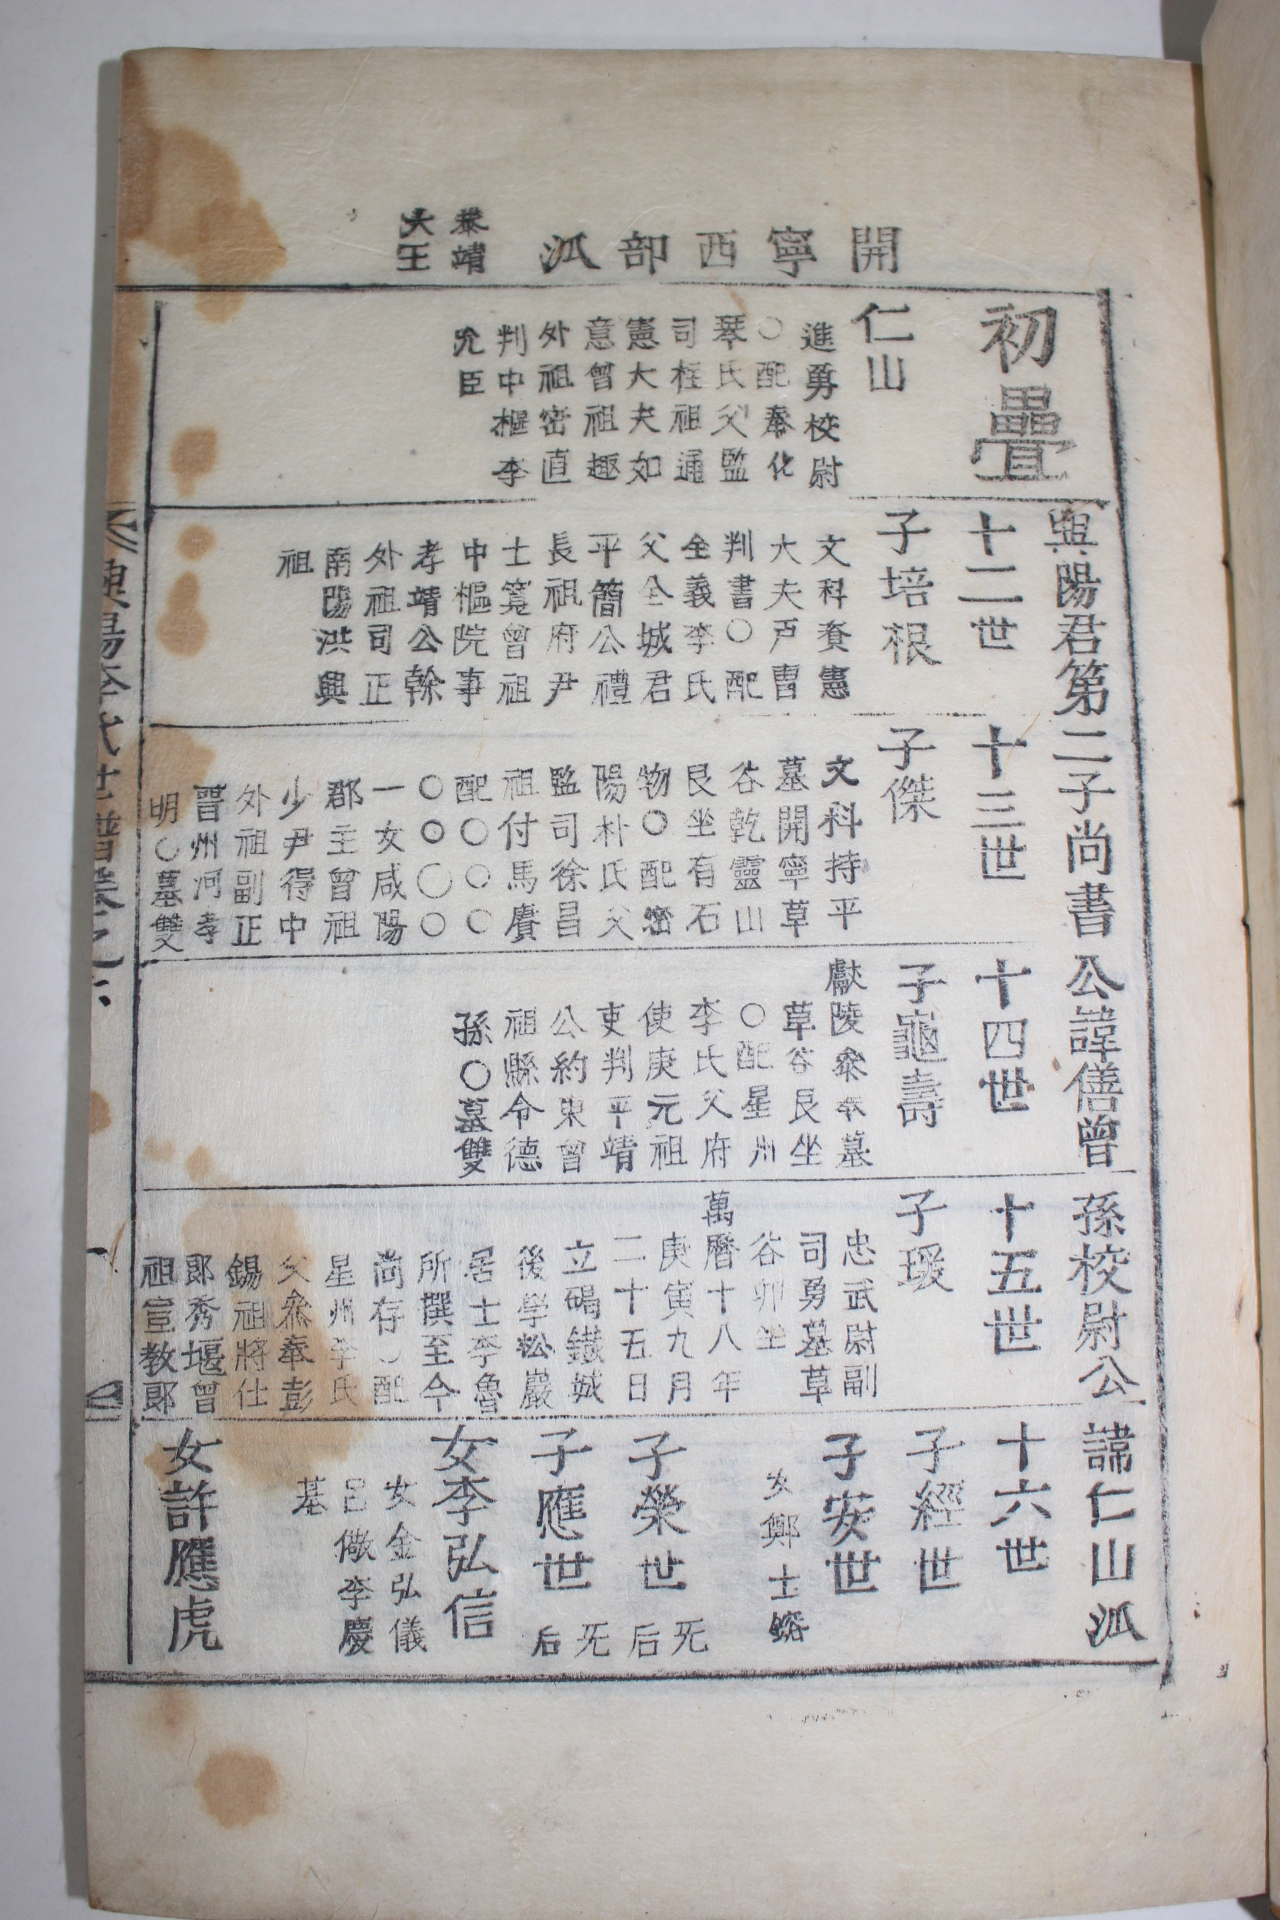 開寧西部派
泰靖
大王
初疊
興陽君第二子尚書公諱僐曾孫校尉公諱仁山派
仁山
進勇校尉
○配奉化
琴氏父監
司柱祖通
憲大夫如
意曾祖趣
外祖密直
判中樞李
允臣
十二世
子培根
文科資憲
大夫戶曹
判書○配
全義李氏
父全城君
平簡公禮
長祖府尹
士寬曾祖
中樞院事
孝靖公幹
外祖司正
南陽洪興
祖
十三世
子傑
文科持平
墓開寧草
谷乾靈山
艮坐有石
物○配密
陽朴氏父
監司徐昌
祖付馬賡
配○○○
○○○○
一女咸陽
郡主曾祖
少尹得中
外祖副正
晉州河孝
明○墓雙
十四世
子龜壽
獻陵叅奉墓
草谷艮坐
○配星州
李氏父府
使庚元祖
吏判平靖
公約東曾
祖縣令德
孫○墓雙
十五世
子瑗
忠武尉副
司勇墓草
谷卯坐
萬曆十八年
庚寅九月
二十五日
立碣鐵城
後學松巖
居士李魯
所撰至今
尚存○配
星州李氏
父叅奉彭
錫祖將仕
郞秀堰曾
祖宣教郞
十六世
子經世
子安世
女鄭士
子榮世
无后
子應世
无后
女李弘信
女金弘儀
呂儆李慶
基
女許應虎
興陽李氏世譜卷之六
一